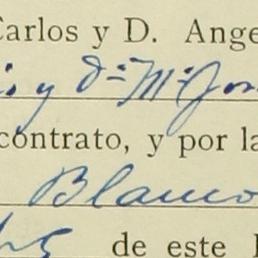 Carlos y D. Ange
y Dª Mª Jos
contrato, y por la
Blanco
de este